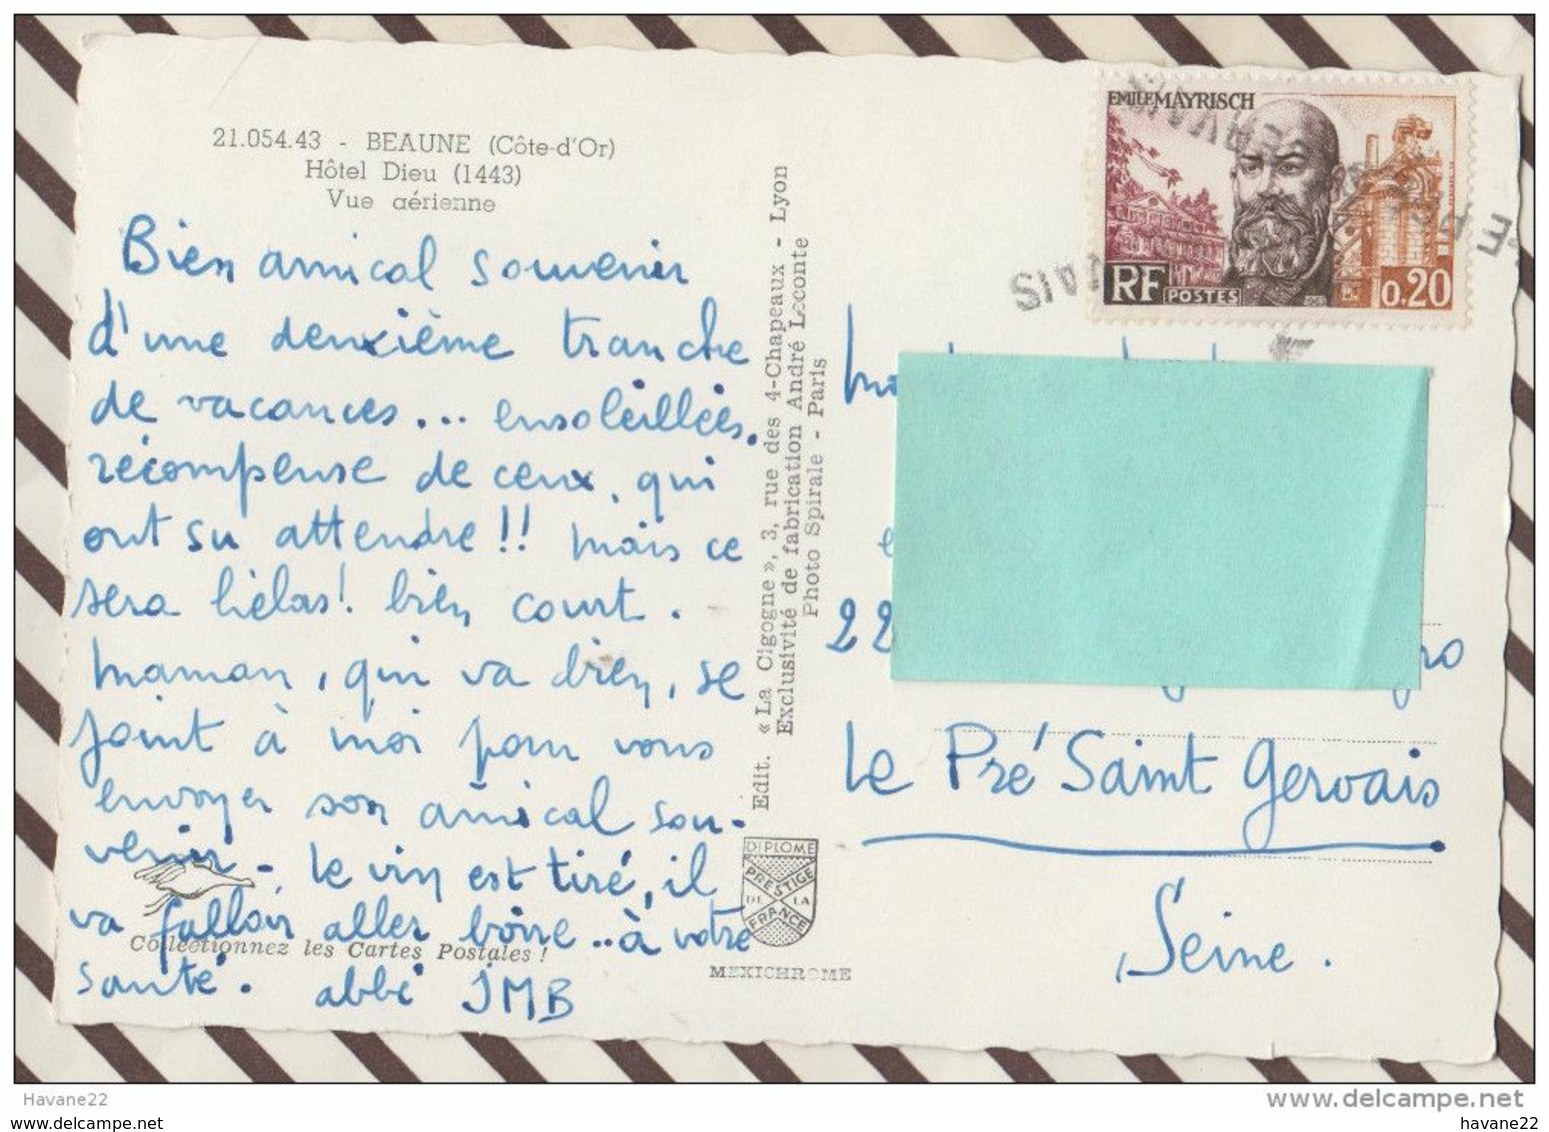 21.054.43 - BEAUNE (Côte-d'Or)
Hôtel Dieu (1443)
Vue aérienne
Bien amical souvenir
d'une deuxième tranche
de vacances... ensoleillées,
récompense de ceux, qui
ont su attendre!! mais ce
sera hélas! bien court.
maman, qui va bien, se
joint à moi pour vous
envoyer son amical sou-
venir -. le vin est tiré, il
va falloir aller boire .. à votre
santé. abbé JMB
Collectionnez les Cartes Postales !
Edit. « La Cigogne », 3, rue des 4-Chapeaux - Lyon
Exclusivité de fabrication André Leconte
Photo Spirale - Paris
DIPLOME
PRESTIGE
DE LA
FRANCE
MEXICHROME
EMILE MAYRISCH
RF POSTES 0,20
22
Le Pré Saint Gervais
Seine.
Havane22
www.delcampe.net
havane22